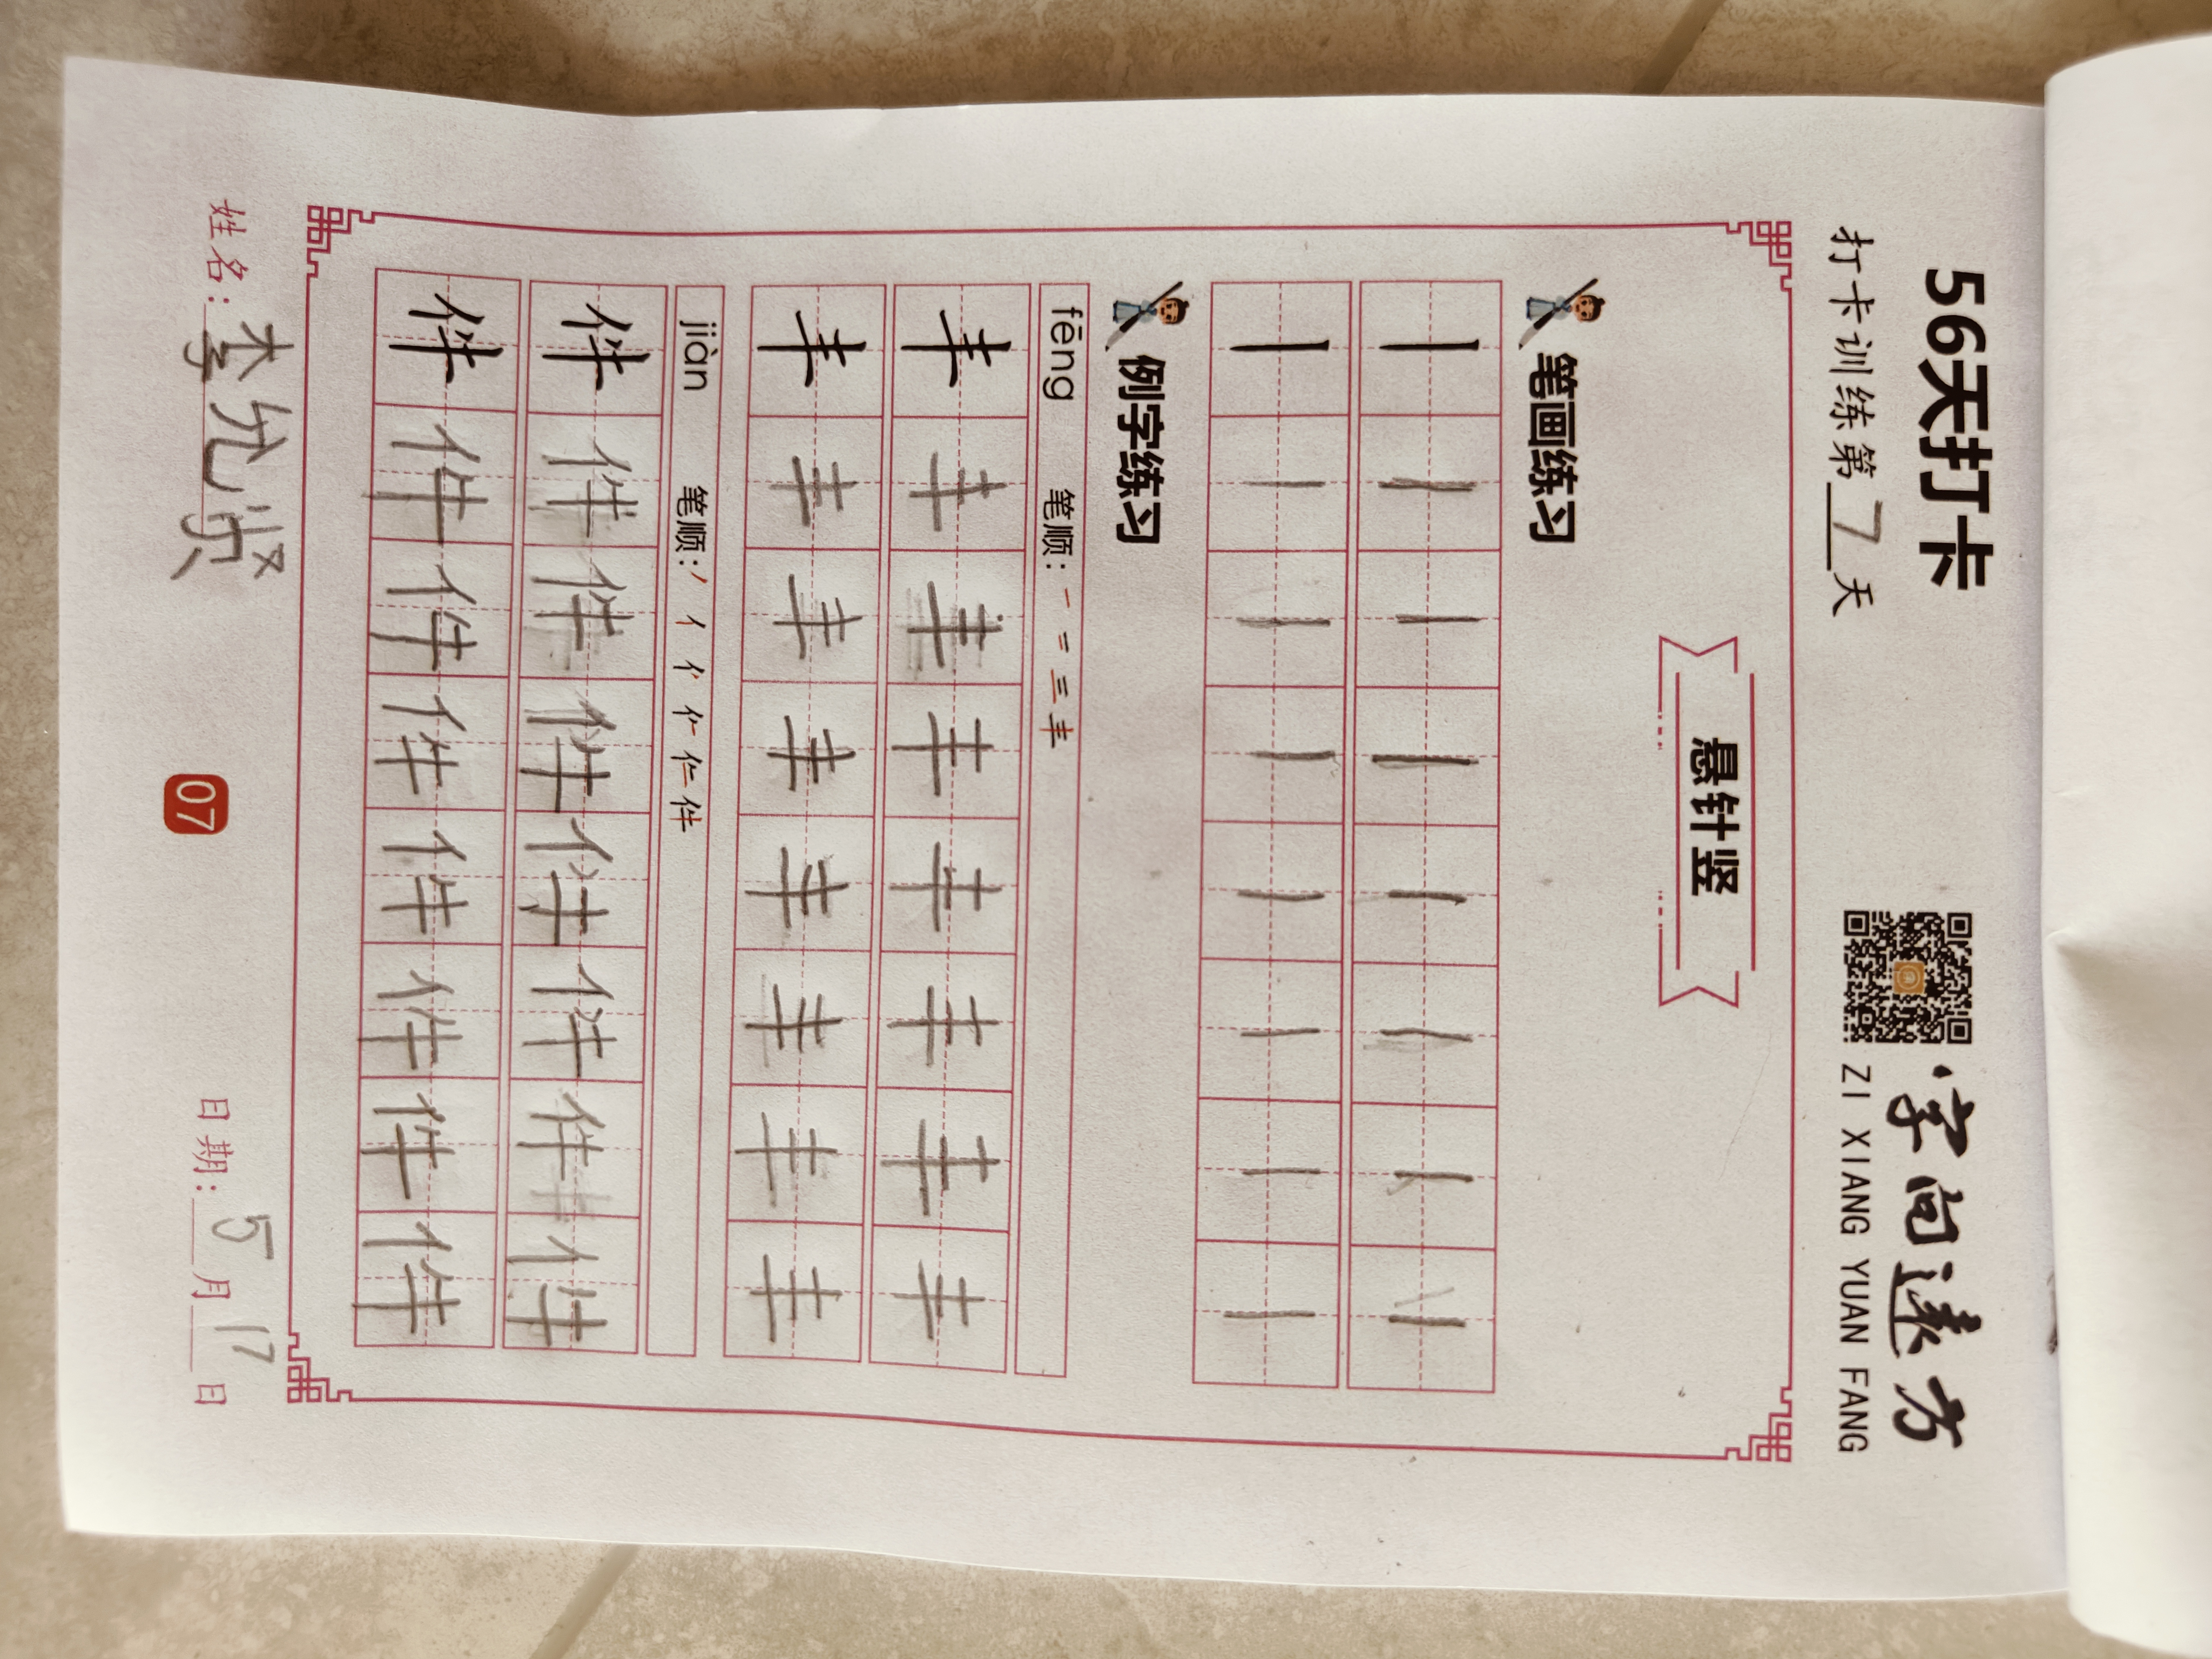 56天打卡
打卡训练第7天
字向远方
ZI XIANG YUAN FANG
悬针竖
笔画练习
丨丨丨丨丨丨丨丨
丨丨丨丨丨丨丨丨
例字练习
fēng 笔顺：一 二 三 丰
丰丰丰丰丰丰丰丰
丰丰丰丰丰丰丰丰
jiàn 笔顺：丿 亻 亻 仁 仁 件
件件件件件件件件
件件件件件件件件
姓名：李允贤 日期：5月17日
07